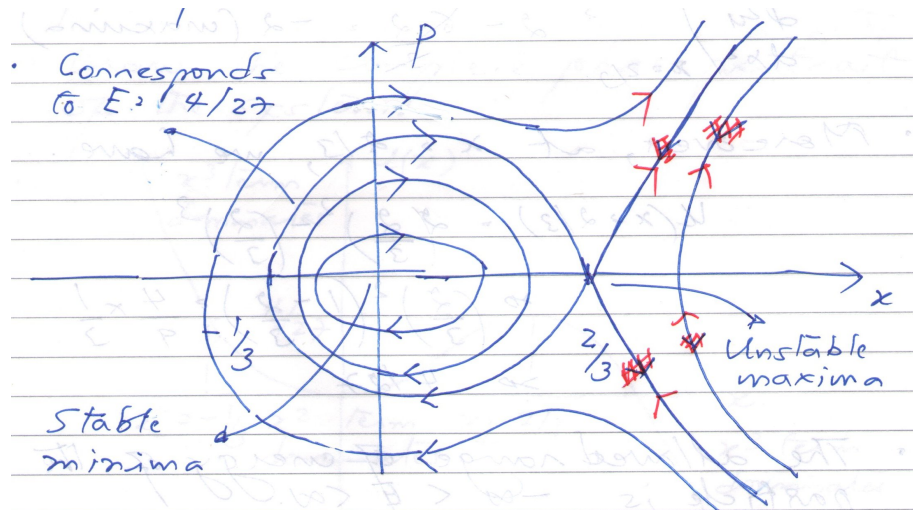 P
Corresponds
to E = 4/27
x
-1/3
2/3
Unstable
maxima
Stable
minima